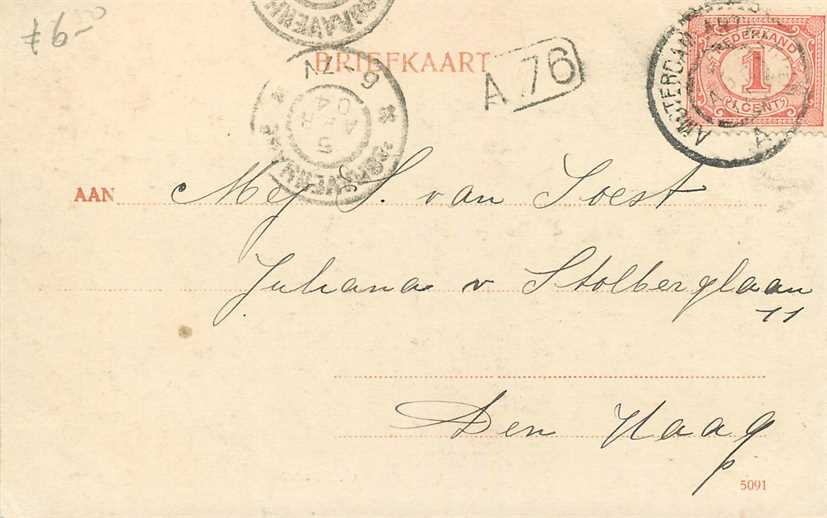 ƒ 6-00
'SGRAVENH
BRIEFKAART
A 76
AMSTERDAM
A
NEDERLAND
1
(1 CENT)
6-7N
5
APR
04
'SGRAVENH
AAN Mej S. van Soest
Juliana v Stolberglaan
11
Den Haag
5091